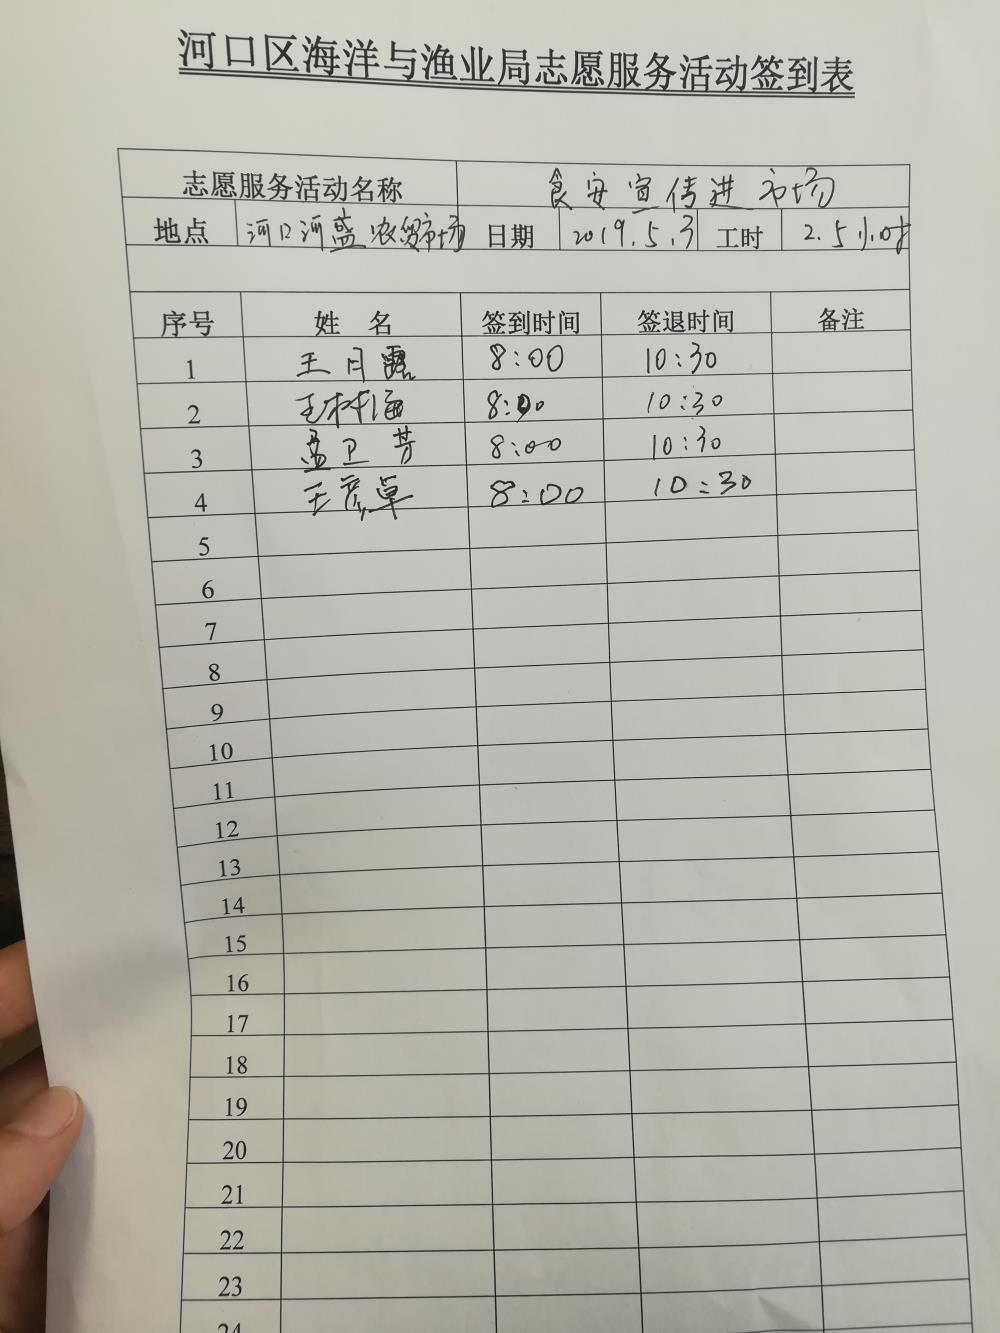 河口区海洋与渔业局志愿服务活动签到表
志愿服务活动名称 食安宣传进市场
地点 河口河盛农贸市场 日期 2019.5.3 工时 2.5小时
序号 姓 名 签到时间 签退时间 备注
1 王月露 8:00 10:30
2 王林海 8:00 10:30
3 孟卫芳 8:00 10:30
4 王彦卓 8:00 10:30
5
6
7
8
9
10
11
12
13
14
15
16
17
18
19
20
21
22
23
24